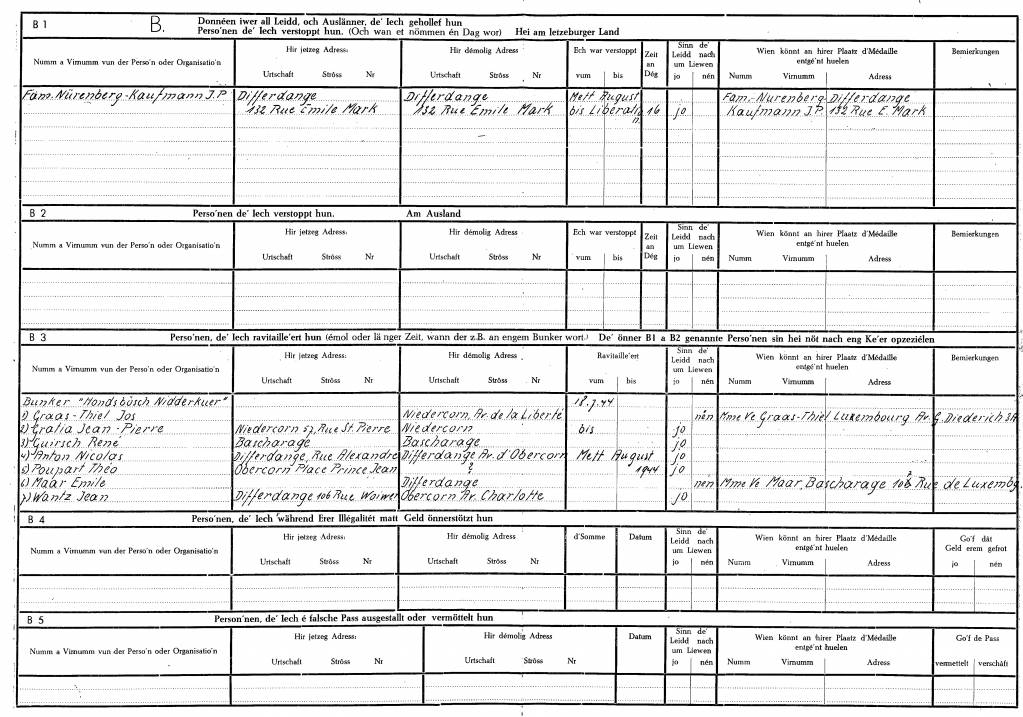 B 1 B. Donnéen iwer all Leidd, och Auslänner, de' Iech gehollef hun
Perso'nen de' Iech verstoppt hun. (Och wan et nömmen én Dag wor) Hei am letzeburger Land
Numm a Virnumm vun der Perso'n oder Organisatio'n
Hir jetzeg Adress:
Urtschaft Ströss Nr
Hir démolig Adress
Urtschaft Ströss Nr
Ech war verstoppt
vum bis
Zeit an Dég
Sinn de' Leidd nach um Liewen
jo nén
Wien könnt an hirer Plaatz d'Médaille
entgé'nt huelen
Numm Virnumm Adress
Bemierkungen
Fam. Nürenberg-Kaufmann J.P. Differdange Differdange Mett August Fam.-Nurenberg Differdange
132 Rue Emile Mark 132 Rue Emile Mark bis Liberatio 16 jo Kaufmann J.P. 132 Rue E. Mark
n.
B 2 Perso'nen de' Iech verstoppt hun. Am Ausland
Numm a Virnumm vun der Perso'n oder Organisatio'n
Hir jetzeg Adress:
Urtschaft Ströss Nr
Hir démolig Adress
Urtschaft Ströss Nr
Ech war verstoppt
vum bis
Zeit an Dég
Sinn de' Leidd nach um Liewen
jo nén
Wien könnt an hirer Plaatz d'Médaille
entgé'nt huelen
Numm Virnumm Adress
Bemierkungen
B 3 Perso'nen, de' Iech ravitaille'ert hun (émol oder länger Zeit, wann der z.B. an engem Bunker wort.) De' önner B1 a B2 genannte Perso'nen sin hei nöt nach eng Ke'er opzeziélen
Numm a Virnumm vun der Perso'n oder Organisatio'n
Hir jetzeg Adress:
Urtschaft Ströss Nr
Hir démolig Adress
Urtschaft Ströss Nr
Ravitaille'ert
vum bis
Sinn de' Leidd nach um Liewen
jo nén
Wien könnt an hirer Plaatz d'Médaille
entgé'nt huelen
Numm Virnumm Adress
Bemierkungen
Bunker "Hondsbüsch Nidderkuer" 18.7.44
1) Graas-Thiel Jos Niedercorn, Av. de la Liberté nén Mme Ve Graas-Thiel Luxembourg Av. G. Diederich 5A
2) Gratia Jean-Pierre Niedercorn 57, Rue St. Pierre Niedercorn bis jo
3) Guirsch René Bascharage Bascharage jo
4) Anton Nicolas Differdange, Rue Alexandre Differdange Av. d'Obercorn Mett August jo
5) Poupart Théo Obercorn Place Prince Jean ? 1944 jo
6) Maar Emile Differdange nen Mme Ve Maar, Bascharage 106 ? Rue de Luxembg.
7) Wantz Jean Differdange 106 Rue Woiwer Obercorn Av. Charlotte jo
B 4 Perso'nen, de' Iech während Erer Illégalitét matt Geld önnerstötzt hun
Numm a Virnumm vun der Perso'n oder Organisatio'n
Hir jetzeg Adress:
Urtschaft Ströss Nr
Hir démolig Adress
Urtschaft Ströss Nr
d'Somme
Datum
Sinn de' Leidd nach um Liewen
jo nén
Wien könnt an hirer Plaatz d'Médaille
entgé'nt huelen
Numm Virnumm Adress
Go'f dât
Geld erem gefrot
jo nén
B 5 Person'nen, de' Iech é falsche Pass ausgestallt oder vermöttelt hun
Numm a Virnumm vun der Perso'n oder Organisatio'n
Hir jetzeg Adress:
Urtschaft Ströss Nr
Hir démolig Adress
Urtschaft Ströss Nr
Datum
Sinn de' Leidd nach um Liewen
jo nén
Wien könnt an hirer Plaatz d'Médaille
entgé'nt huelen
Numm Virnumm Adress
Go'f de Pass
vermettelt verschâft